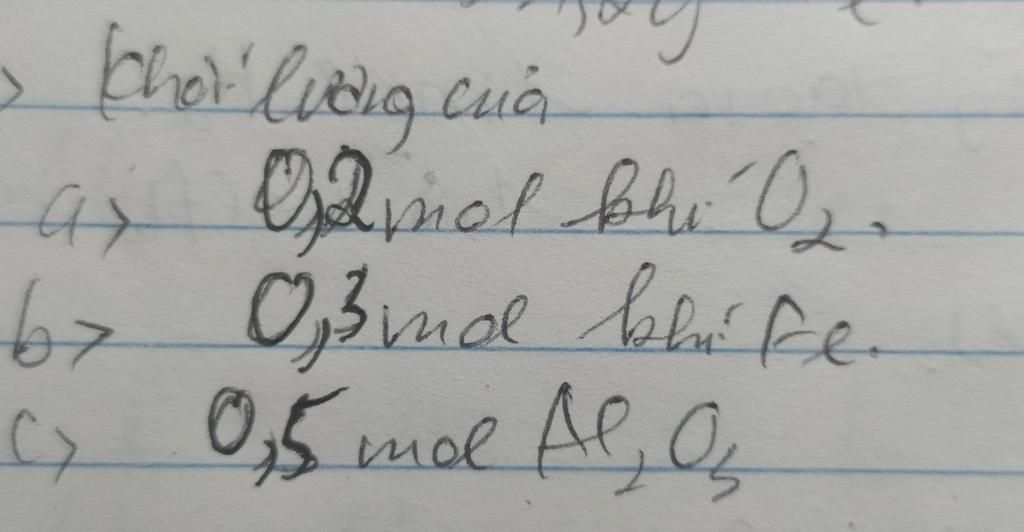 > Khối lượng của
a> 0,2 mol khí O₂.
b> 0,3 mol khí Fe.
c> 0,5 mol Al₂O₃